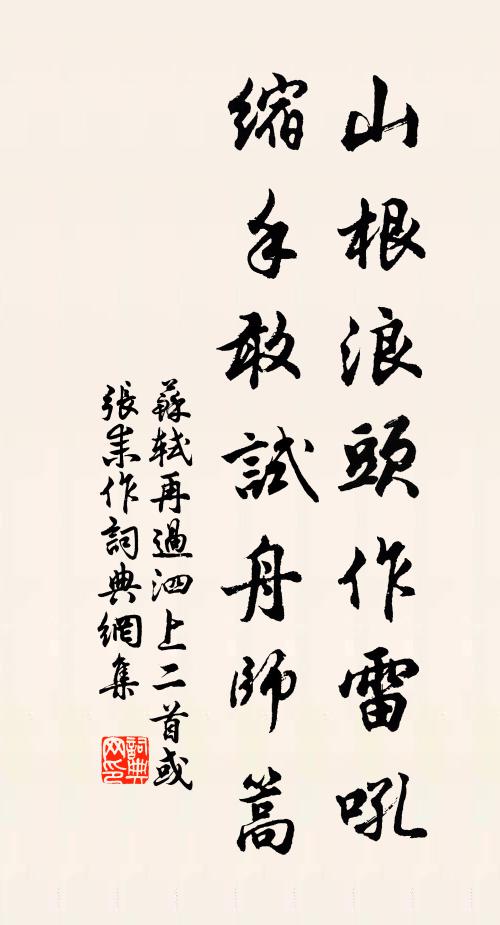 山根浪頭作雷吼
縮手敢試舟師篙
蘇軾再過泗上二首或
張耒作詞典網集
詞典網印